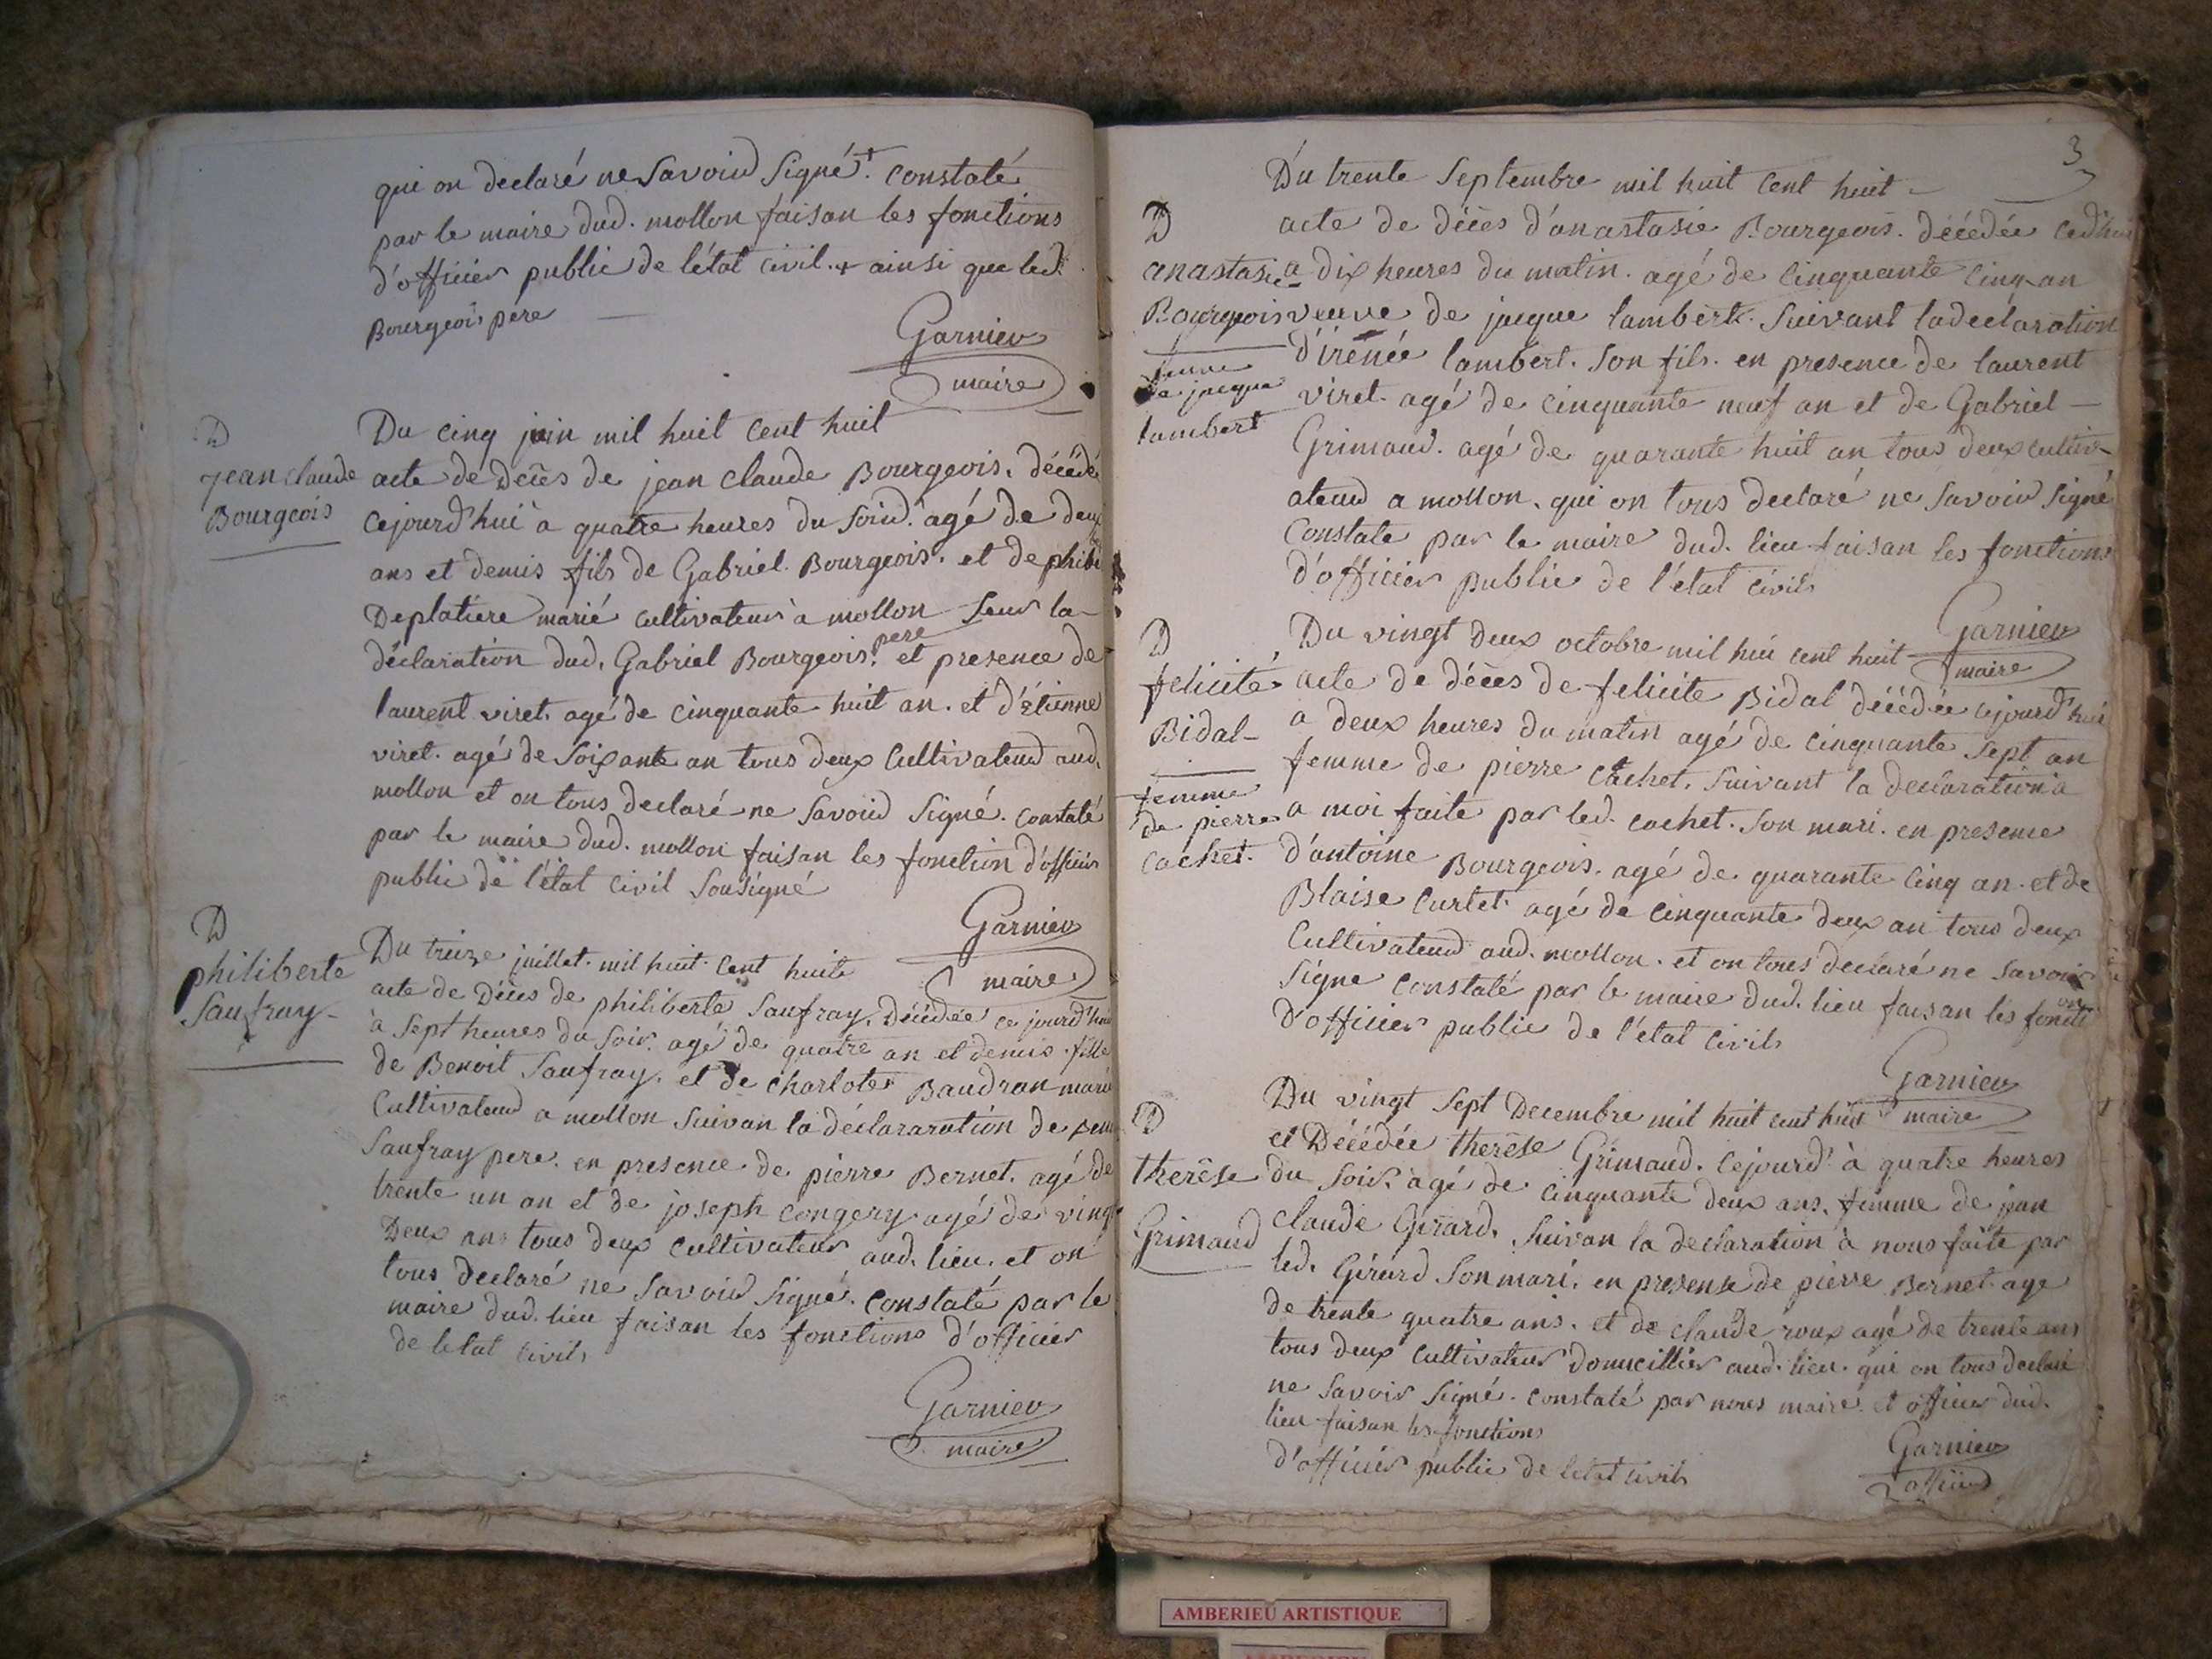 qui on declaré ne savoir signé + constaté
par le maire dud. mollon faisan les fonctions
d'officier public de létat civil. + ainsi que led.
Bourgeois père
Garnier
maire
D
jean claude
Bourgeois
Du cinq juin mil huit cent huit
acte de Deces de jean claude Bourgeois. décédé
cejourd'hui a quatre heures du soir. agé de deux
ans et demis fils de Gabriel Bourgeois. et de phibe
Deplatiere marié cultivateur a mollon sur la
déclaration dud. Gabriel Bourgeois. pere et presence de
laurent viret. agé de cinquante huit an. et d'Etienne
viret. agé de soixante an tous deux cultivateur aud.
mollon et on tous declaré ne savoir signé. constaté
par le maire dud. mollon faisan les fonction d'officier
public de l'état civil sousigné
Garnier
maire
D
philiberte
Saufray
Du treize juillet. mil huit. cent huite
acte de Déces de philiberte Saufray, Décédée ce jourd'hui
à sept heures du soir. agé de quatre an et demis. fille
de Benoit Saufray. et de charlote Baudran marié
cultivateur a mollon suivan la déclararation de
Saufray pere. en presence de pierre Bernet. agé de
trente un an et de joseph congery agé de vingt
Deux ans tous deux cultivateur aud. lieu. et on
tous declaré ne savoir signé. constaté par le
maire dud. lieu faisan les fonctions d'officier
de letat civil
Garnier
maire
3
Du trente septembre mil huit cent huit
D
anastasie
Bourgeois
femme
de jacque
lambert
acte de déces d'anastasie Bourgeois. décédée cedhui
a dix heures du matin. agé de cinquante cinq an
veuve de jacque lambert. suivant la declaration
d'irénée lambert. son fils. en presence de laurent
viret. agé de cinquante neuf an et de Gabriel
Grimaud. agé de quarante huit an tous deux cultiv-
ateur a mollon. qui on tous declaré ne savoir signé
constate par le maire dud. lieu faisan les fonctions
d'officier public de l'état civil
Garnier
maire
D
félicité
Bidal
femme
de pierre
cachet.
Du vingt deux octobre mil hui cent huit
acte de déces de felicite Bidal décédée cejourd'hui
a deux heures du matin agé de cinquante sept an
femme de pierre cachet. suivant la declaration a
a moi faite par led. cachet. son mari. en presence
d'antoine Bourgeois. agé de quarante cinq an. et de
Blaise curtet. agé de cinquante deux an tous deux
cultivateur aud. mollon. et on tous declaré ne savoir
signe constaté par le maire dud. lieu faisan les fonction
d'officier public de l'état civil
Garnier
maire
D
therèse
Grimaud
Du vingt sept Decembre mil huit cent huit
et Décédée therèse Grimaud. cejourd' à quatre heures
du soir. agé de cinquante deux ans. femme de jean
claude Gérard. suivan la declaration à nous faite par
led. Gérard son mari. en presense de pierre Bernet. age
de trente quatre ans. et de claude roux agé de trente ans
tous deux cultivateur domicillier aud. lieu. qui on tous declaré
ne savoir signé. constaté par nous maire. et officier dud.
lieu faisan les fonctions
d'officier public de letat civil
Garnier
officier
AMBERIEU ARTISTIQUE
AMBERIEU